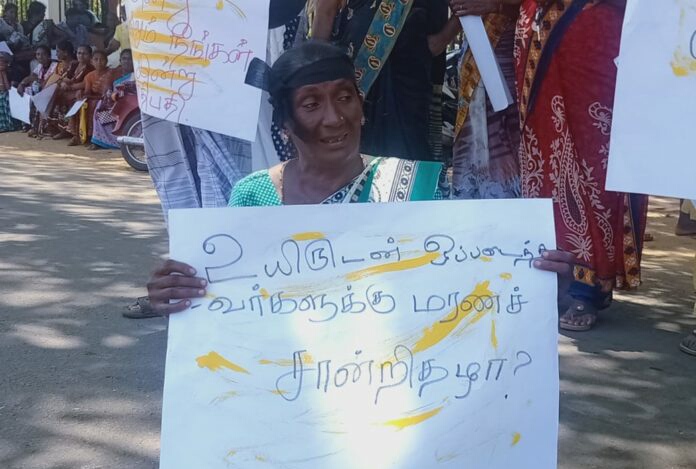 நீங்கள்
உயிருடன் ஒப்படைத்த
-வர்களுக்கு மரணச்
சான்றிதழா?